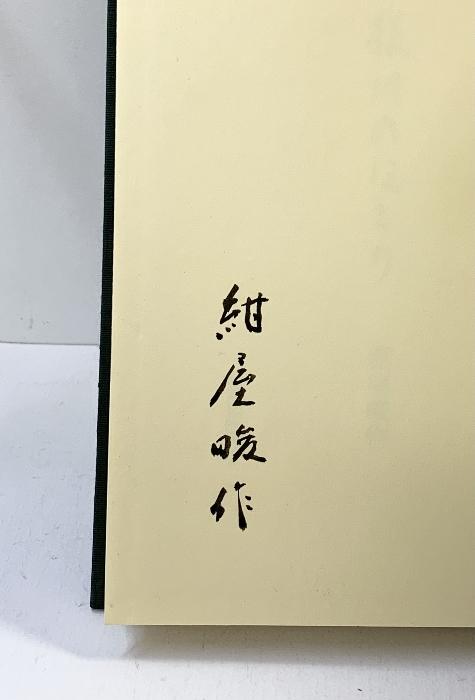 紺屋畯作